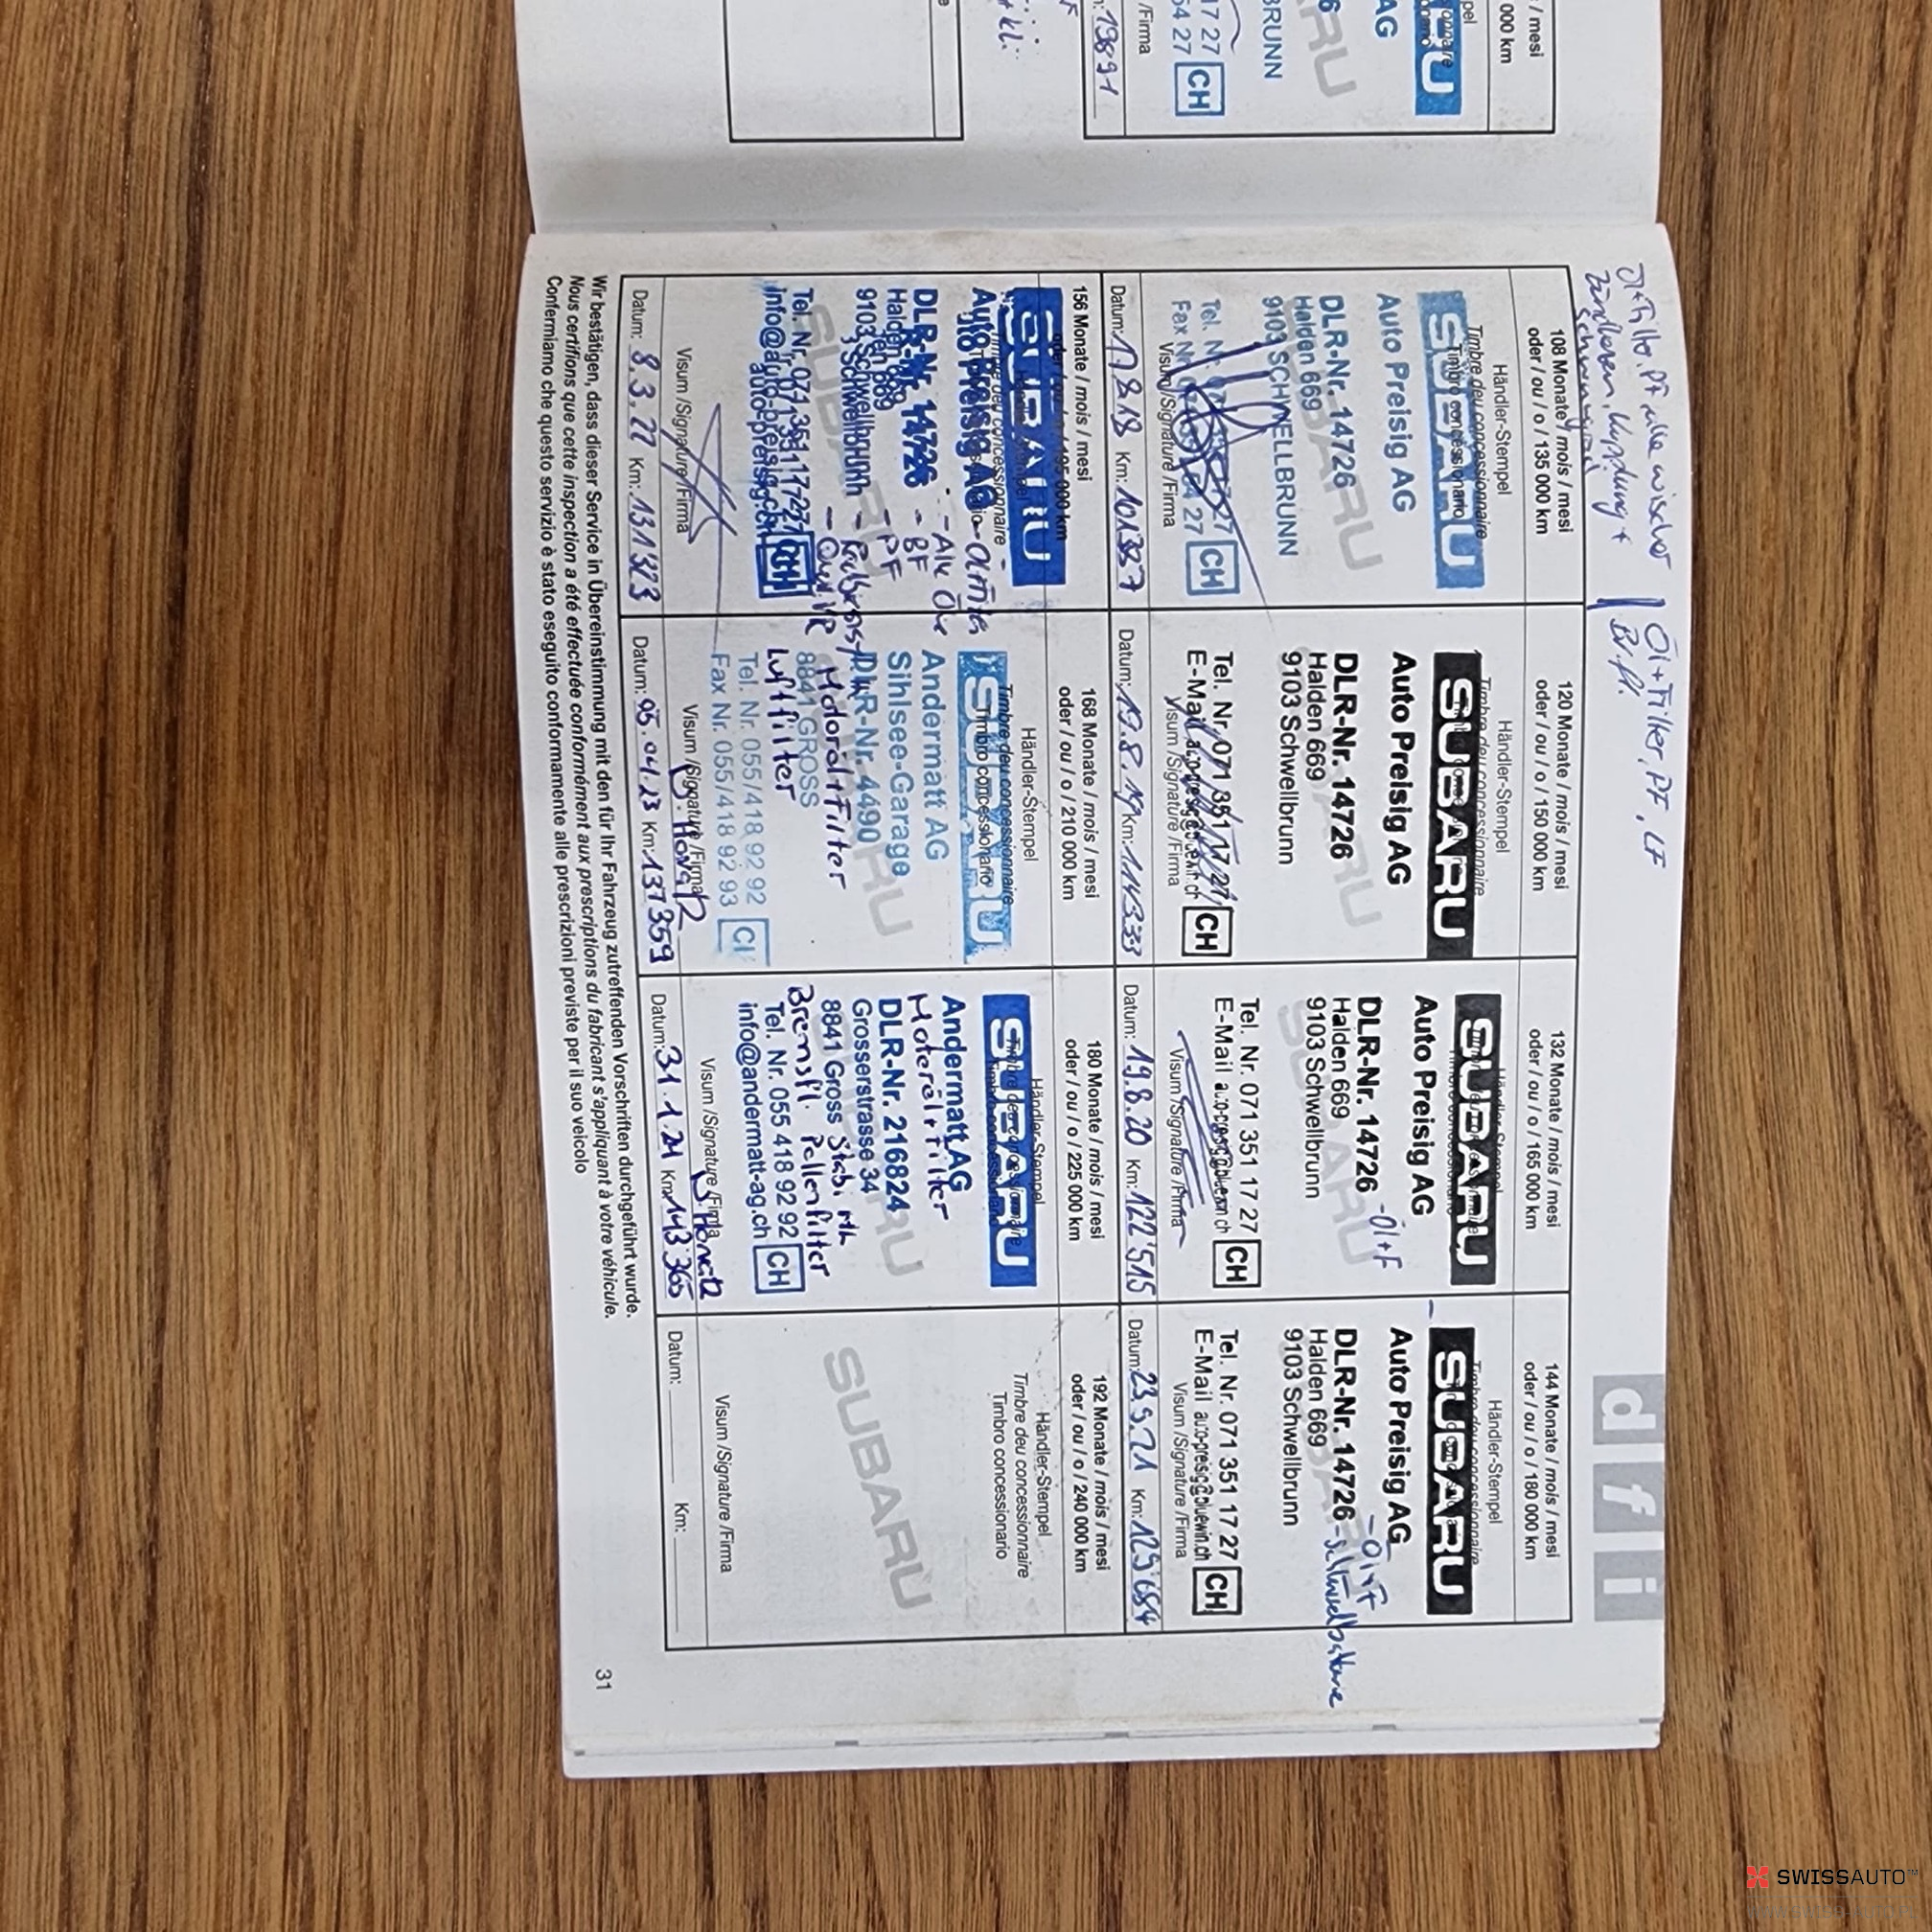 d f i
Öl+Filter, PF, LF
Br.fl.
108 Monate / mois / mesi
oder / ou / o / 135 000 km
Händler-Stempel
Timbre deu concessionnaire
Timbro concessionario
SUBARU
Auto Preisig AG
DLR-Nr. 14726
Halden 669
9103 SCHWELLBRUNN
CH
Visum /Signature /Firma
Datum: 17.8.18 Km: 101'337
120 Monate / mois / mesi
oder / ou / o / 150 000 km
Händler-Stempel
SUBARU
Auto Preisig AG
DLR-Nr. 14726
Halden 669
9103 Schwellbrunn
Tel. Nr. 071 351 17 27
E-Mail auto-preisig@bluewin.ch
CH
Visum /Signature /Firma
Datum: 19.8.19 Km: 114'333
132 Monate / mois / mesi
oder / ou / o / 165 000 km
SUBARU
Auto Preisig AG
DLR-Nr. 14726 -Öl+F
Halden 669
9103 Schwellbrunn
Tel. Nr. 071 351 17 27
E-Mail auto-preisig@bluewin.ch
CH
Visum /Signature /Firma
Datum: 19.8.20 Km: 122'515
144 Monate / mois / mesi
oder / ou / o / 180 000 km
Händler-Stempel
SUBARU
Auto Preisig AG -Öl+F
DLR-Nr. 14726
Halden 669
9103 Schwellbrunn
Tel. Nr. 071 351 17 27
E-Mail auto-preisig@bluewin.ch
CH
Visum /Signature /Firma
Datum: 23.9.21 Km: 129'684
156 Monate / mois / mesi
oder / ou / o / 195 000 km
SUBARU
Auto Preisig AG
DLR-Nr. 14726 - BF
Halden 669 - PF
9103 Schwellbrunn
Tel. Nr. 071 351 17 27
info@auto-preisig.ch
CH
Visum /Signature /Firma
Datum: 8.3.22 Km: 131'323
168 Monate / mois / mesi
oder / ou / o / 210 000 km
Händler-Stempel
Timbre deu concessionnaire
Timbro concessionario
SUBARU
Andermatt AG
Sihlsee-Garage
DLR-Nr. 4490
Motoröl+Filter
8841 GROSS
Luftfilter
Tel. Nr. 055/418 92 92
Fax Nr. 055/418 92 93
Visum /Signature /Firma
Datum: 05.04.23 Km: 137359
180 Monate / mois / mesi
oder / ou / o / 225 000 km
Händler-Stempel
SUBARU
Andermatt AG
Motoröl+Filter
DLR-Nr. 216824
Grosserstrasse 34
8841 Gross
Bremsfl. Pollenfilter
Tel. Nr. 055 418 92 92
info@andermatt-ag.ch
CH
Visum /Signature /Firma
Datum: 31.1.24 Km: 143'365
192 Monate / mois / mesi
oder / ou / o / 240 000 km
Händler-Stempel
Timbre deu concessionnaire
Timbro concessionario
SUBARU
Visum /Signature /Firma
Datum: Km:
Wir bestätigen, dass dieser Service in Übereinstimmung mit den für Ihr Fahrzeug zutreffenden Vorschriften durchgeführt wurde.
Nous certifions que cette inspection a été effectuée conformément aux prescriptions du fabricant s'appliquant à votre véhicule.
Confermiamo che questo servizio è stato eseguito conformamente alle prescrizioni previste per il suo veicolo
31
SWISSAUTO™